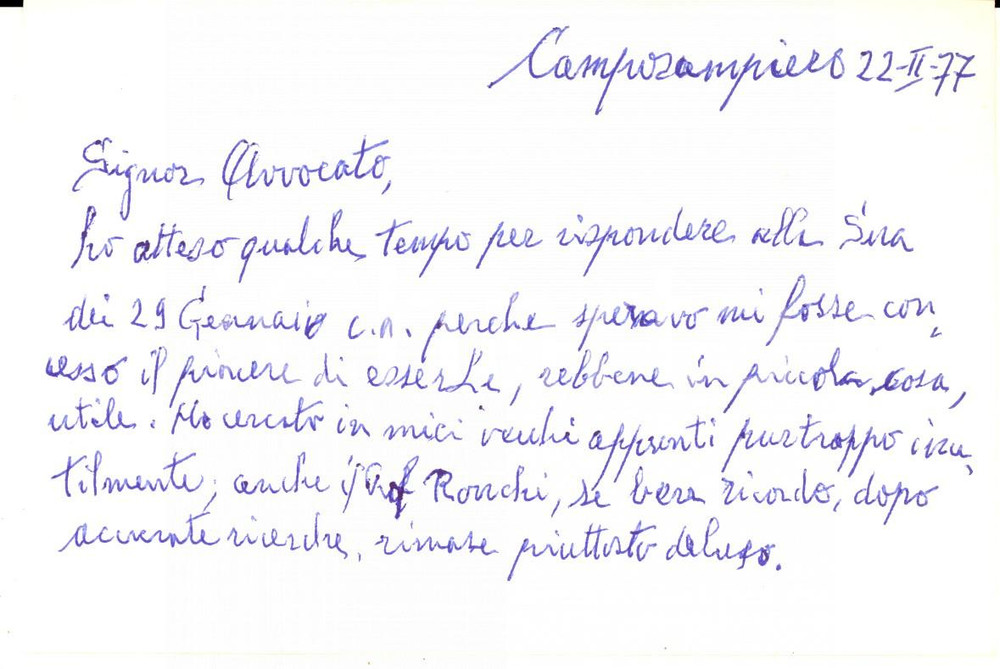 Camposampiero 22-II-77
Signor Avvocato,
ho atteso qualche tempo per rispondere alla Sua
dei 29 Gennaio c.a. perche speravo mi fosse con
cesso il piacere di esserLe, sebbene in piccola cosa,
utile. Ho cercato in miei vecchi appunti purtroppo inu
tilmente; anche il Prof Ronchi, se bene ricordo, dopo
accurate ricerche, rimase piuttosto deluso.